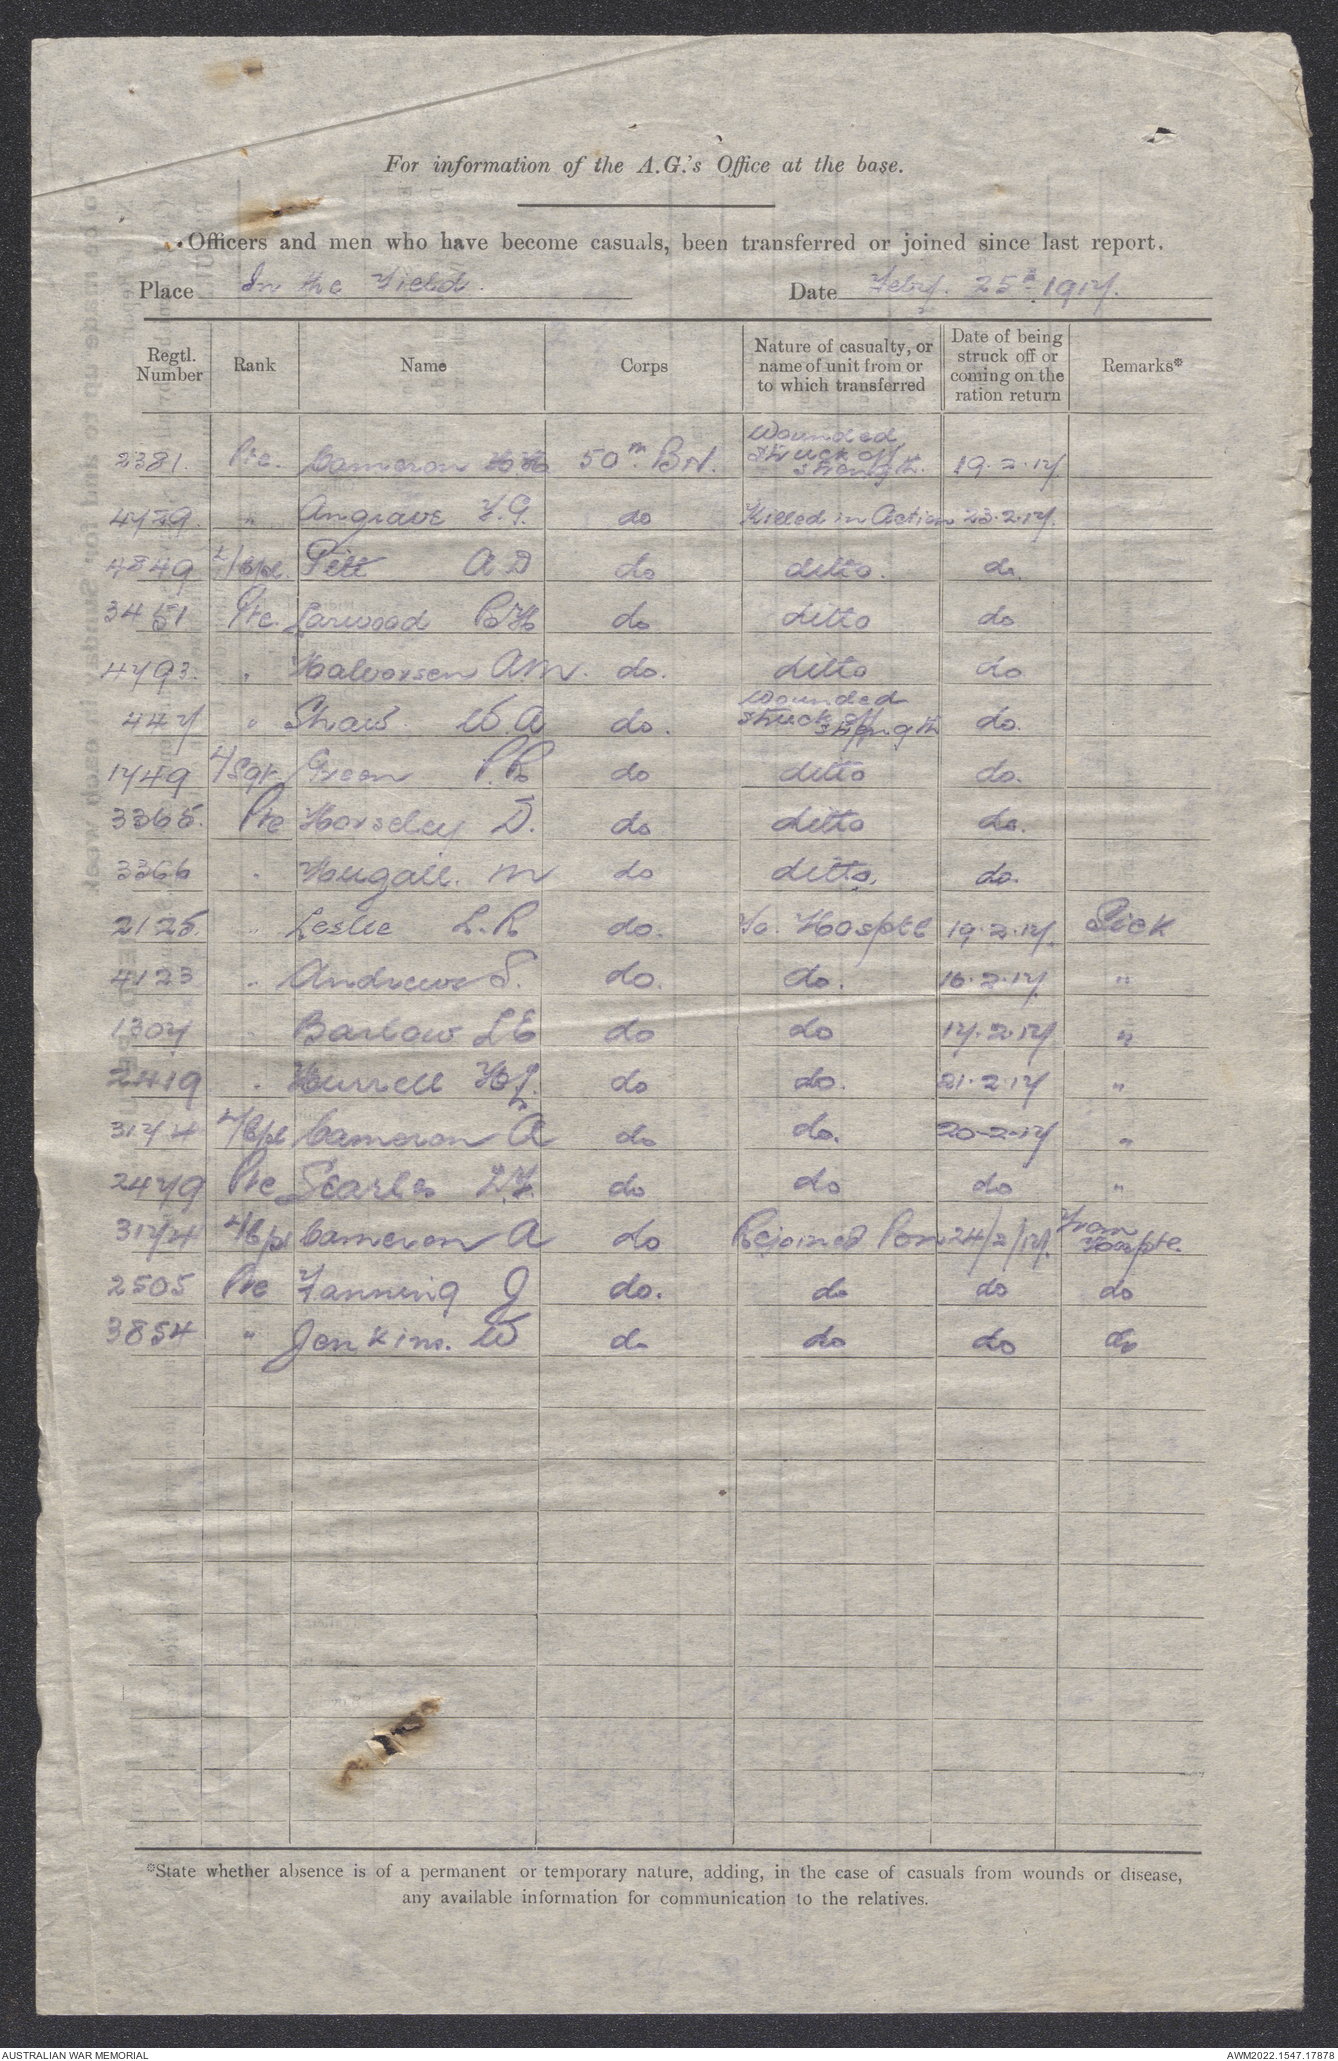 For information of the A.G.'s Office at the base.
Officers and men who have become casuals, been transferred or joined since last report.
Place In the Field. Date Feby. 25th 1917.
Regtl. Number Rank Name Corps Nature of casualty, or name of unit from or to which transferred Date of being struck off or coming on the ration return Remarks*
2381. Pte. Cameron H.H. 50th Bn. Wounded struck off strength. 19.2.17
4729. " Angrave F.G. do Killed in Action 23.2.17.
4849 L/Cpl. Pitt A D do ditto. do.
3451 Pte. Larwood R H do ditto do
4793. " Halvorsen A M. do. ditto do
447 " Shaw. W A do. Wounded struck off strength do.
1749 L/Sgt. Green P. R do ditto do.
3365. Pte Horseley D. do ditto do.
3366 " Hugall. M do ditto. do.
2125. " Leslie L. R do. To. Hosptl 19.2.17. Sick
4123 " Andrews S. do. do. 16.2.17. "
1307 " Barlow L E do do 17.2.17 "
2419 " Hurrell H J. do do. 21.2.17 "
3174 L/Cpl Cameron A do do. 20-2-17 "
2479 Pte Searles L.F. do do do "
3174 L/Cpl Cameron A do Rejoined from 24/2/17. From Hosptl.
2505 Pte Fanning J do. do do do
3854 " Jenkins. W do do do do
*State whether absence is of a permanent or temporary nature, adding, in the case of casuals from wounds or disease,
any available information for communication to the relatives.
AUSTRALIAN WAR MEMORIAL AWM2022.1547.17878